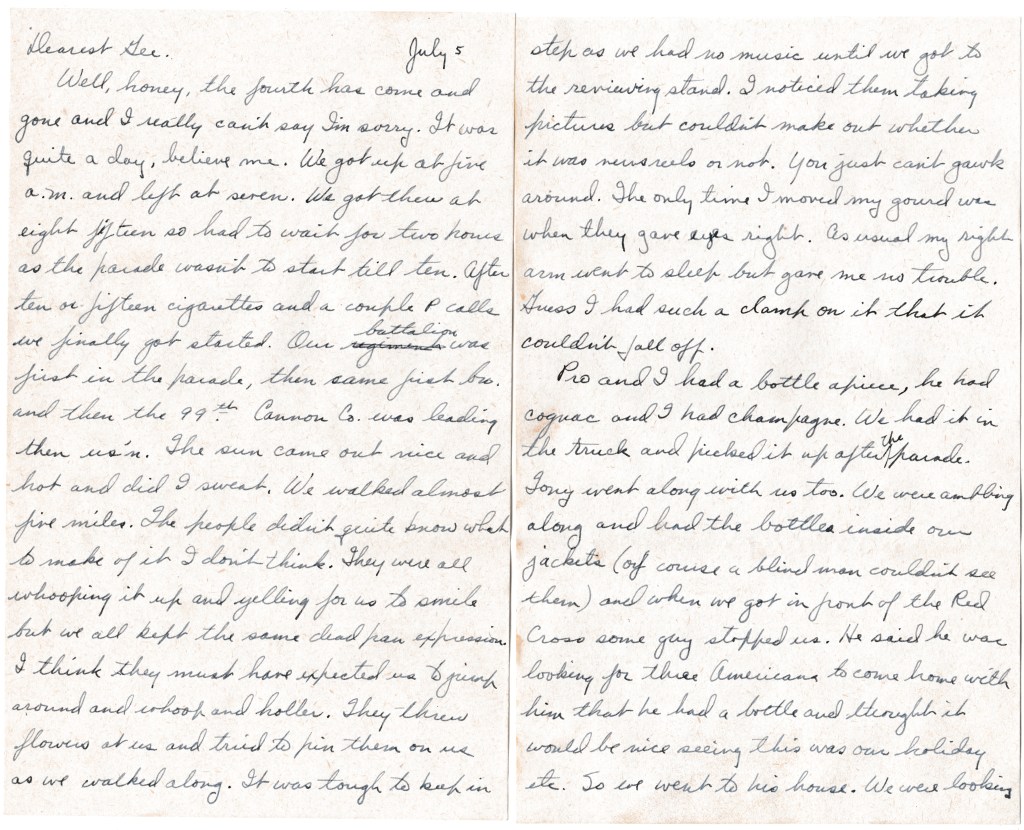 Dearest Gee. July 5
Well, honey, the fourth has come and
gone and I really can't say I'm sorry. It was
quite a day, believe me. We got up at five
a.m. and left at seven. We got there at
eight fifteen so had to wait for two hours
as the parade wasn't to start till ten. After
ten or fifteen cigarettes and a couple P calls
we finally got started. Our regiment battalion was
first in the parade, then some first bn.
and then the 99th. Cannon Co. was leading
then us'n. The sun came out nice and
hot and did I sweat. We walked almost
five miles. The people didn't quite know what
to make of it I don't think. They were all
whooping it up and yelling for us to smile
but we all kept the same dead pan expression.
I think they must have expected us to jump
around and whoop and holler. They threw
flowers at us and tried to pin them on us
as we walked along. It was tough to keep in
step as we had no music until we got to
the reviewing stand. I noticed them taking
pictures but couldn't make out whether
it was newsreels or not. You just can't gawk
around. The only time I moved my gourd was
when they gave eyes right. As usual my right
arm went to sleep but gave me no trouble.
Guess I had such a clamp on it that it
couldn't fall off.
Pro and I had a bottle apiece, he had
cognac and I had champagne. We had it in
the truck and picked it up after the parade.
Tony went along with us too. We were ambling
along and had the bottles inside our
jackets (of course a blind man couldn't see
them) and when we got in front of the Red
Cross some guy stopped us. He said he was
looking for three Americans to come home with
him that he had a bottle and thought it
would be nice seeing this was our holiday
etc. So we went to his house. We were looking